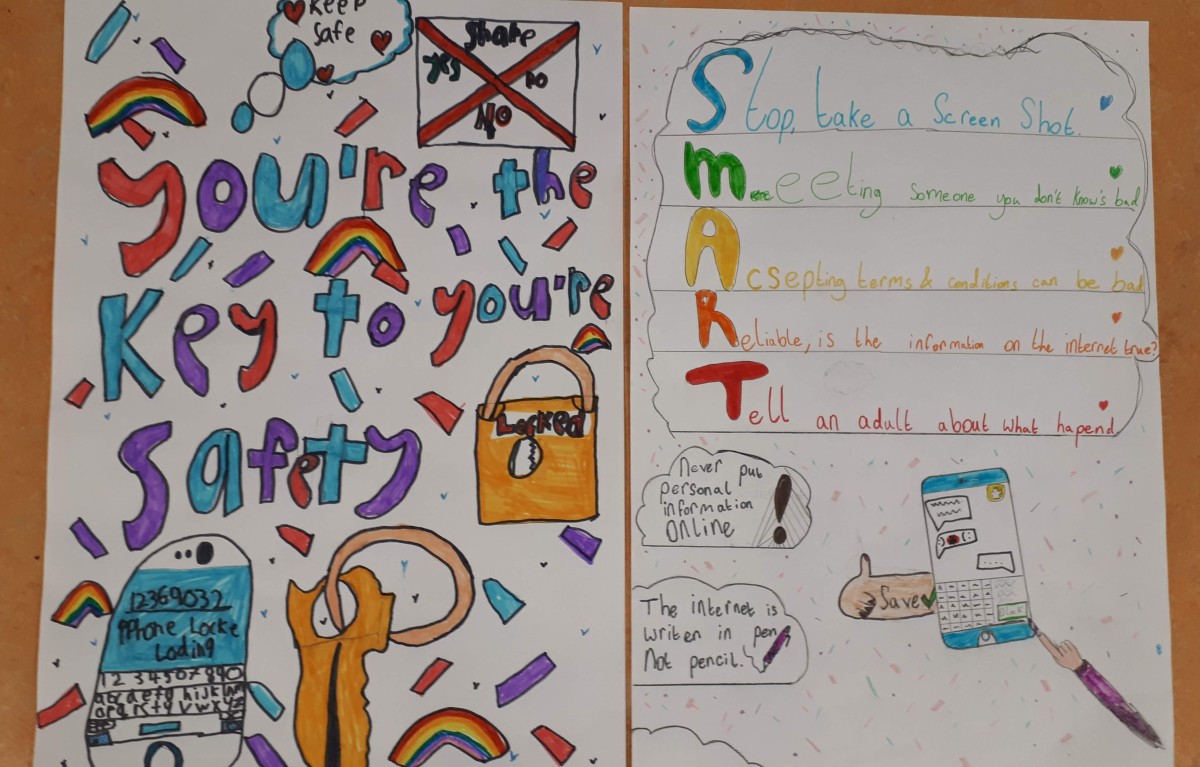 Keep
Safe
Share
yes
no
NO
you're the
Key to you're
Safety
Locked
12369032
Phone Locke
Loding
Stop, take a Screen Shot.
meeting Someone you don't know's bad
Acsepting terms & conditions can be bad
Reliable, is the information on the internet true?
Tell an adult about what hapend
Never put
personal
information
Online
!
Save
The internet is
writen in pen
Not pencil.